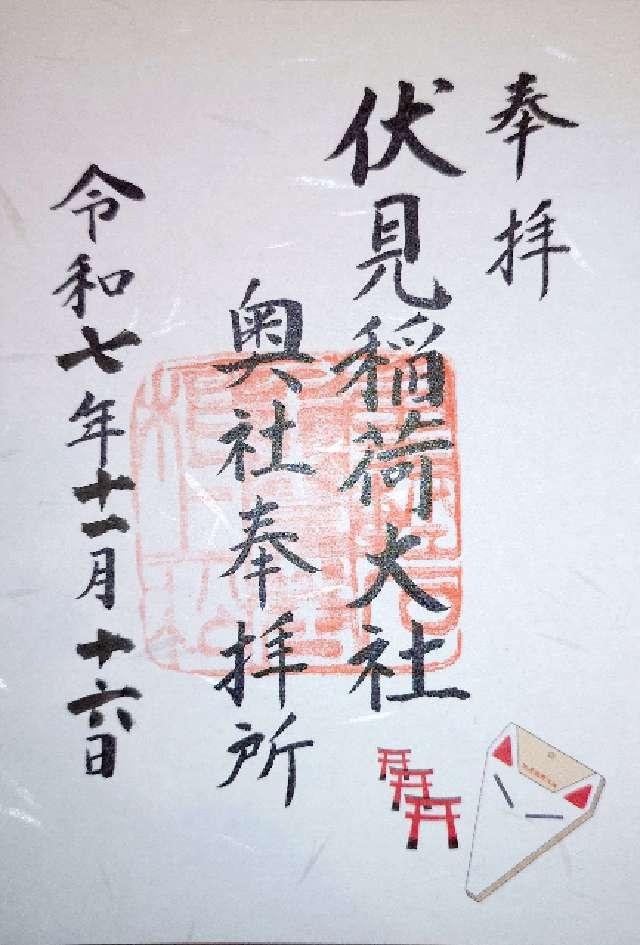 奉拝
伏見稲荷大社
奥社奉拝所
令和七年十一月十六日